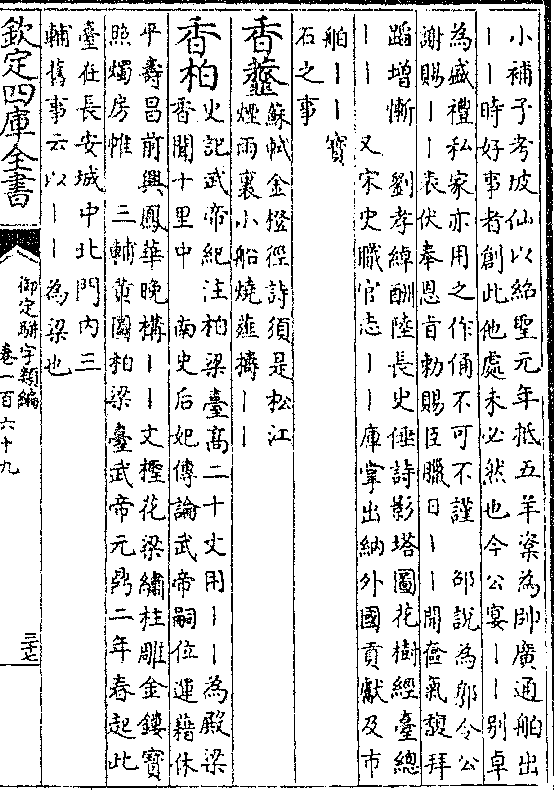 小補予考坡仙以紹聖元年抵五羊粢為帥廣通舶出
｜｜時好事者創此他處未必然也今公宴｜｜别卓
為盛禮私家亦用之作俑不可不謹　邵説為郭令公
謝賜｜｜表伏奉恩旨勅賜臣臘日｜｜開奩氣馥拜
蹈增慚　劉孝綽酬陸長史倕詩影塔圖花樹經臺總
｜｜　又宋史職官志｜｜庫掌出納外國貢獻及市
舶｜｜寳
石之事
香虀蘇軾金橙徑詩須是松江
煙雨裏小船燒薤擣｜｜
香柏史記武帝紀注柏梁臺髙二十丈用｜｜為殿梁
香聞十里中　南史后妃傳論武帝嗣位運藉休
平壽昌前興鳳華晚構｜｜文檉花梁繡柱雕金鏤寳
照燭房帷　三輔黄圖柏梁臺武帝元鼎二年春起此
臺在長安城中北門内三
輔舊事云以｜｜為梁也
欽定四庫全書
御定駢字類編
卷一百六十九
三十七